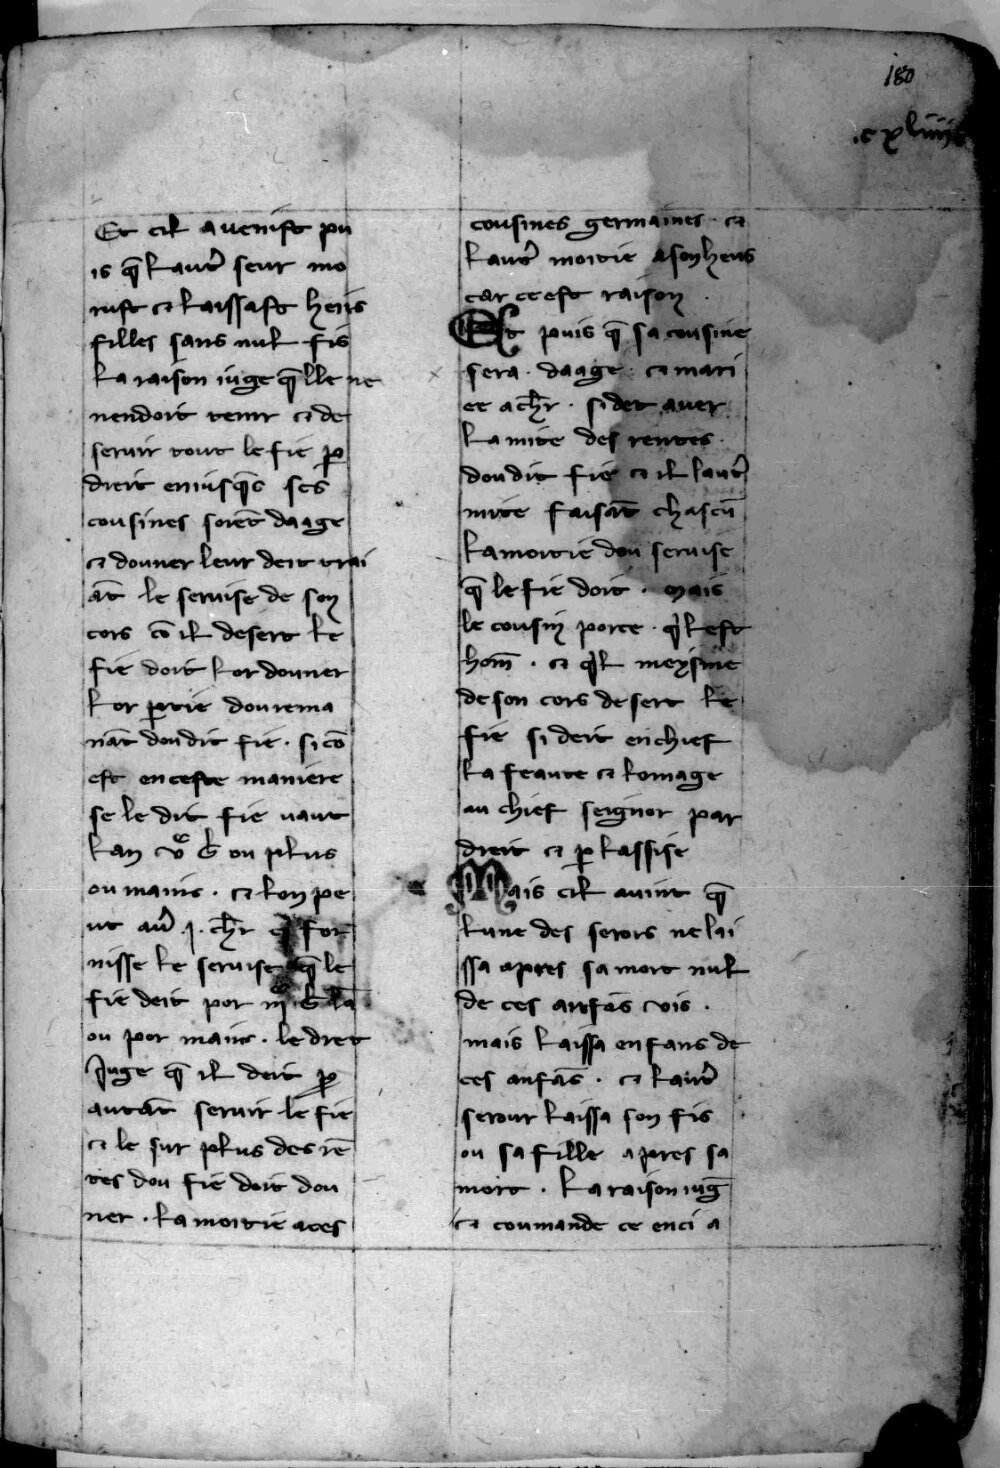 180
.cxliiii.
Et cil avenist pu
is q̄ lautr̉ seur mo
rust ⁊ laissast heirs
filles sans nul fis
la raison iuge q̄lle ne
nendoit tenir ⁊ de
seruir tout le fie ꝑ
dreit eniusq̄s ses
cousines soiēt daage
⁊ douner leur deit trai
āt le seruise de son
cors cō il desert le
fie doit lor douner
lor ꝑtie dou rema
nāt doudit fie . si cō
est en ceste maniere
se le dit fie uaut
lan vͨ ou plus
ou mains . ⁊ lon pe
ut au̓ .j. chl̄r q̄ for
nisse le seruise q̄ le
fie deit por
ou por mains . le dret
Juge q̄ il deit ꝑ
autāt seruir le fie
⁊ le sur plus des rē
tes dou fie doit dou
ner . la moitie a ces
cousines germaines . ⁊
lautr̉ moitie a son heus
car ce est raison .
Et puis q̄ sa cousine
sera . daage . ⁊ mari
ee a chl̄r . si det auer
la mite des rentes .
doudit fie ⁊ il lautr̉
mite faisāt chascū
la moitie dou seruise
q̄ le fie doit . mais
le cousin porce . qͥl est
hom̄ . ⁊ qͥl meysme
de son cors desert le
fie si deit en chief
la feaute ⁊ lomage
au chief seignor par
dreit ⁊ ꝑ lassise
Mais cil auint q̄
lune des serors ne lai
ssa apres sa mort nul
de ces anfās vis .
mais laissa enfans de
ces anfās . ⁊ lautr̉
serour laissa son fis
ou sa fille apres sa
mort . La raison iuḡ
⁊ coumande ce enci a